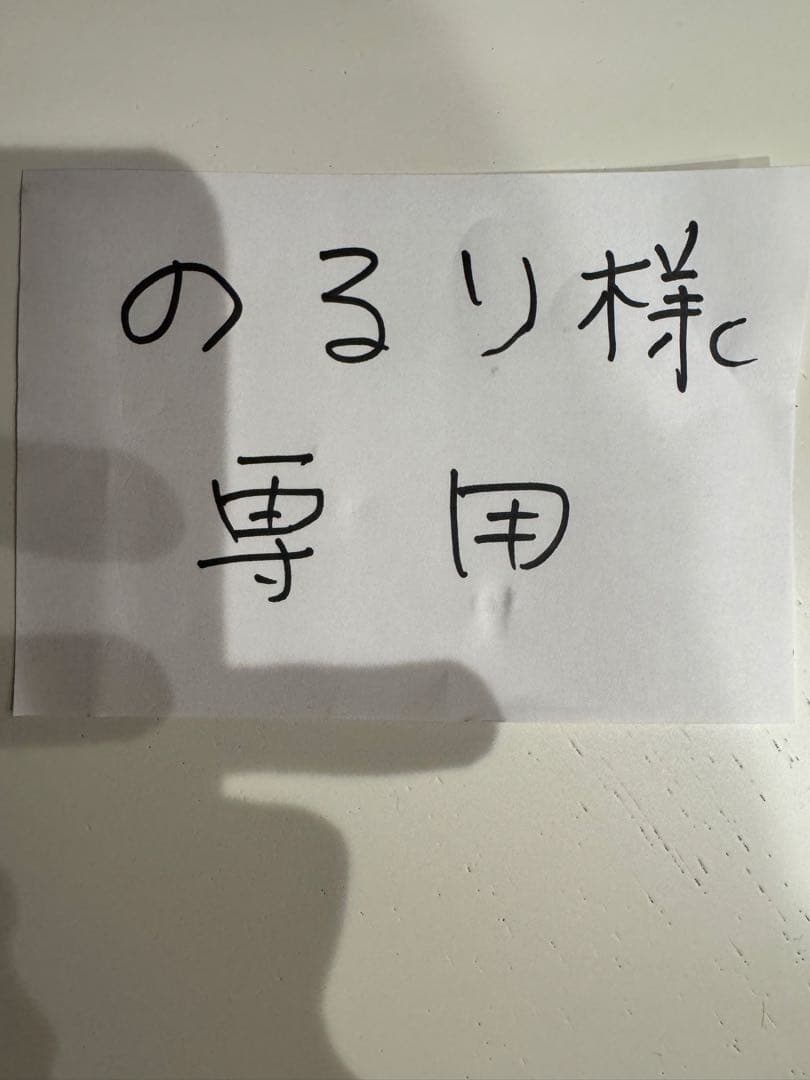 のるり様
専用